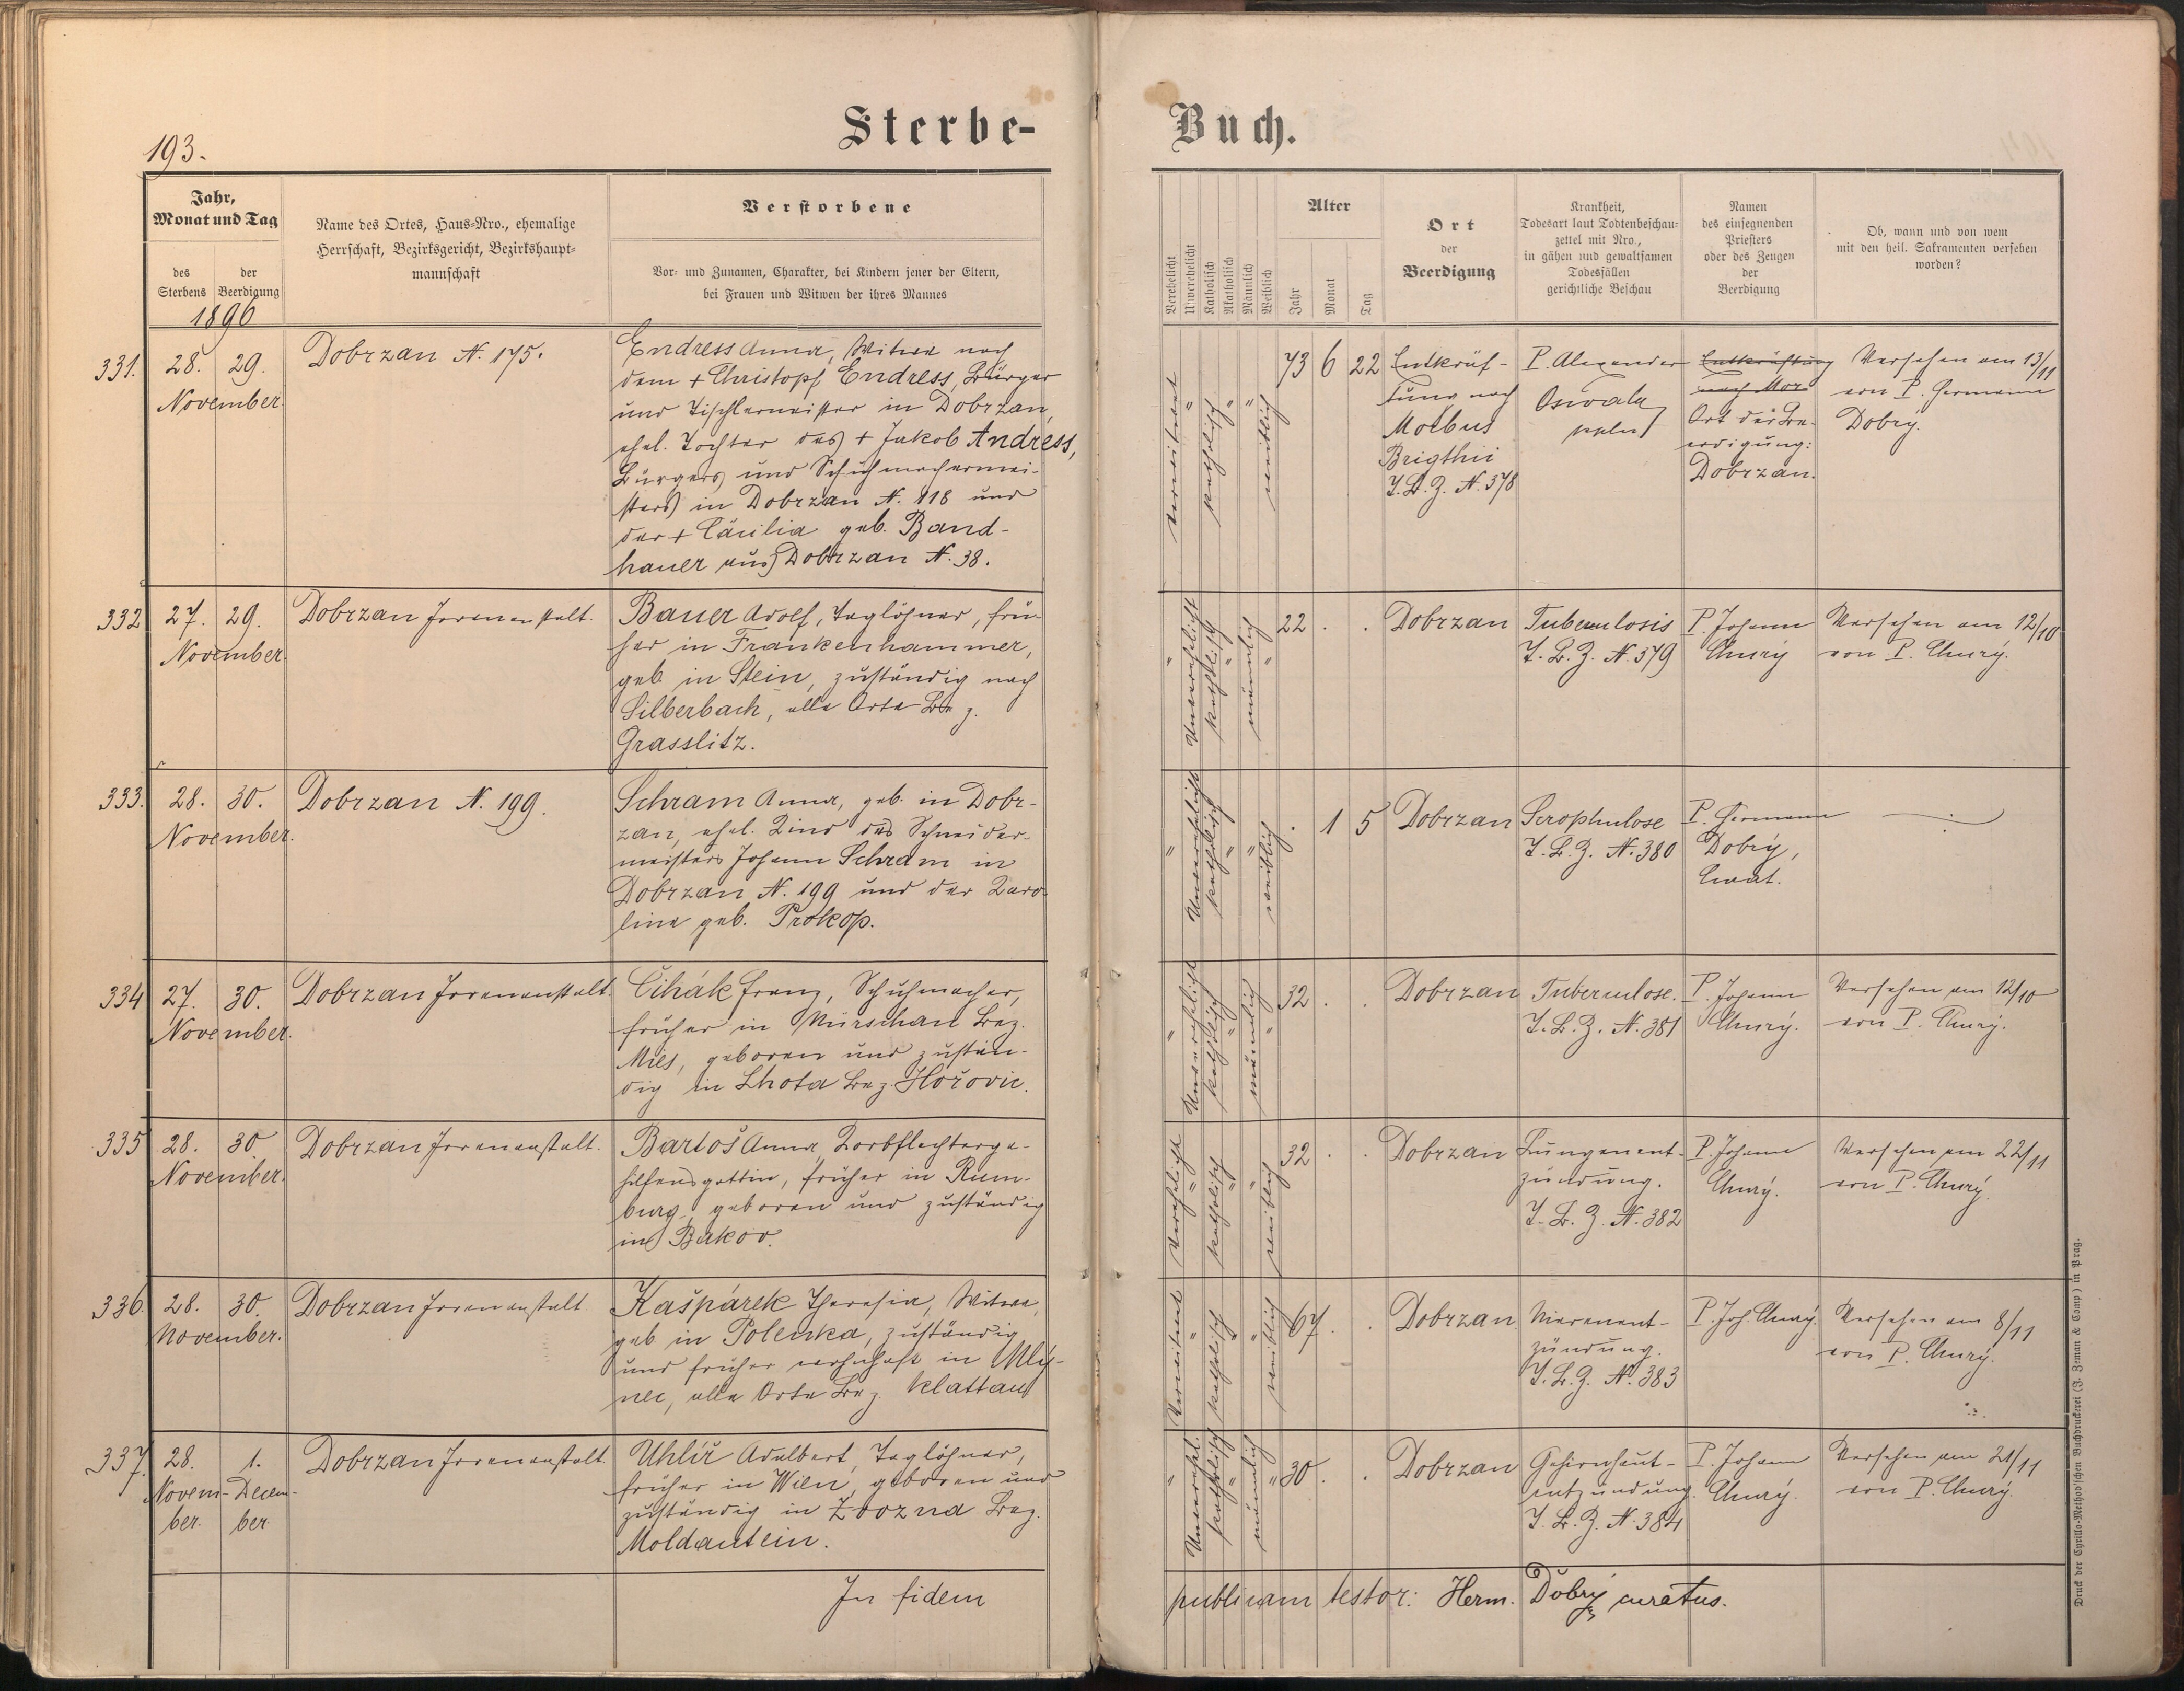 193.
Sterbe-
Buch.
Jahr,
Monat und Tag
des
Sterbens
der
Beerdigung
1896
Name des Ortes, Haus-Nro., ehemalige
Herrschaft, Bezirksgericht, Bezirkshaupt-
mannschaft
Verstorbene
Vor- und Zunamen, Charakter, bei Kindern jener der Eltern,
bei Frauen und Witwen der ihres Mannes
Verehelicht
Unverehelicht
Katholisch
Akatholisch
Männlich
Weiblich
Alter
Jahr
Monat
Tag
Ort
der
Beerdigung
Krankheit,
Todesart laut Todtenbeschau-
zettel mit Nro.,
in gähen und gewaltsamen
Todesfällen
gerichtliche Beschau
Namen
des einsegnenden
Priesters
oder des Zeugen
der
Beerdigung
Ob, wann und von wem
mit den heil. Sakramenten versehen
worden?
331.
28. 29.
November.
Dobrzan N. 175.
Endress Anna, Witwe nach
dem + Christopf Endress, Bürger
und Tischlermeister in Dobrzan,
ehel. Tochter des + Jakob Andress,
Bürgers und Schuhmachermei-
sters in Dobrzan N. 118 und
der + Cäcilia geb. Band-
hauer aus Dobrzan N. 38.
verwitwet
"
katholisch
"
"
weiblich
73 6 22
Entkräf-
tung nach
Morbus
Brigthii
T. B. Z. N. 378
P. Alexander
Oswald
Entkräftung
nach Mor
Ort der Be-
erdigung:
Dobrzan.
Versehen am 13/11
von P. Hermann
Dobrý.
332
27. 29.
November.
Dobrzan Irrenanstalt.
Bauer Adolf, Taglöhner, frü-
her in Frankenhammer,
geb. in Stein, zuständig nach
Silberbach, alle Orte Bez.
Grasslitz.
"
Unverehelicht
katholisch
"
männlich
"
22 . .
Dobrzan
Tuberculosis
T. B. Z. N. 379
P. Johann
Churý
Versehen am 12/10
von P. Churý.
333.
28. 30.
November.
Dobrzan N. 199.
Schram Anna, geb. in Dobr-
zan, ehel. Kind des Schneider-
meisters Johann Schram in
Dobrzan N. 199 und der Karo-
line geb. Prokop.
"
Unverehelicht
katholisch
"
"
weiblich
. 1 5
Dobrzan
Scrophulose
T. B. Z. N. 380
P. Hermann
Dobrý,
Curat.
334
27. 30.
November.
Dobrzan Irrenanstalt.
Čihák Franz, Schuhmacher,
früher in Nürschan Bez.
Mies, geboren und zustän-
dig in Lhota Bez. Hořovic.
"
Unverehelicht
katholisch
"
männlich
"
32 . .
Dobrzan
Tuberculose.
T. B. Z. N. 381
P. Johann
Churý.
Versehen am 12/10
von P. Churý.
335
28. 30
November.
Dobrzan Irrenanstalt.
Bartoš Anna, Korbflechterge-
hilfensgattin, früher in Rum-
burg, geboren und zuständig
in Bakov.
Verehelicht
"
katholisch
"
"
weiblich
32 . .
Dobrzan
Lungenent-
zündung.
T. B. Z. N. 382
P. Johann
Churý.
Versehen am 22/11
von P. Churý.
336.
28. 30.
November.
Dobrzan Irrenanstalt.
Kašpárek Theresia, Witwe,
geb. in Polenka, zuständig
und früher wohnhaft in Mlý-
nec, alle Orte Bez. Klattau
Verwitwet
"
katholisch
"
"
weiblich
67 . .
Dobrzan
Nierenent-
zündung.
T. B. Z. N. 383
P. Joh. Churý.
Versehen am 8/11
von P. Churý.
337.
28. 1.
Novem- Decem-
ber. ber.
Dobrzan Irrenanstalt.
Uhlíř Adalbert, Taglöhner,
früher in Wien, geboren und
zuständig in Bez.
Moldautein.
"
Unverehel.
katholisch
"
männlich
"
30 . .
Dobrzan
Gehirnhaut-
entzündung.
T. B. Z. N. 384
P. Johann
Churý.
Versehen am 21/11
von P. Churý.
In fidem
publicam testor: Herm. Dobrý curatus.
Druck der Cyrillo-Method'schen Buchdruckerei (J. Zeman & Comp.) in Prag.